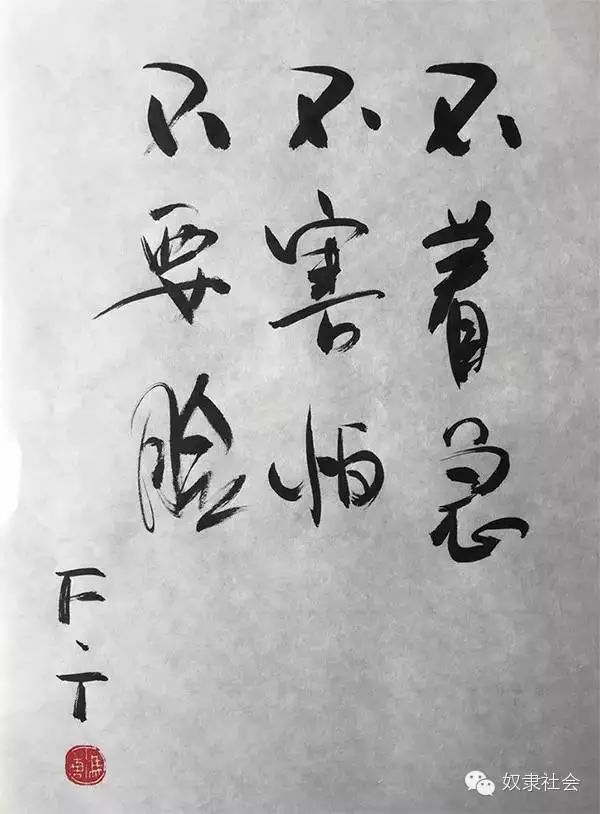 不着急
不害怕
不要脸
F.T
馮唐
奴隶社会